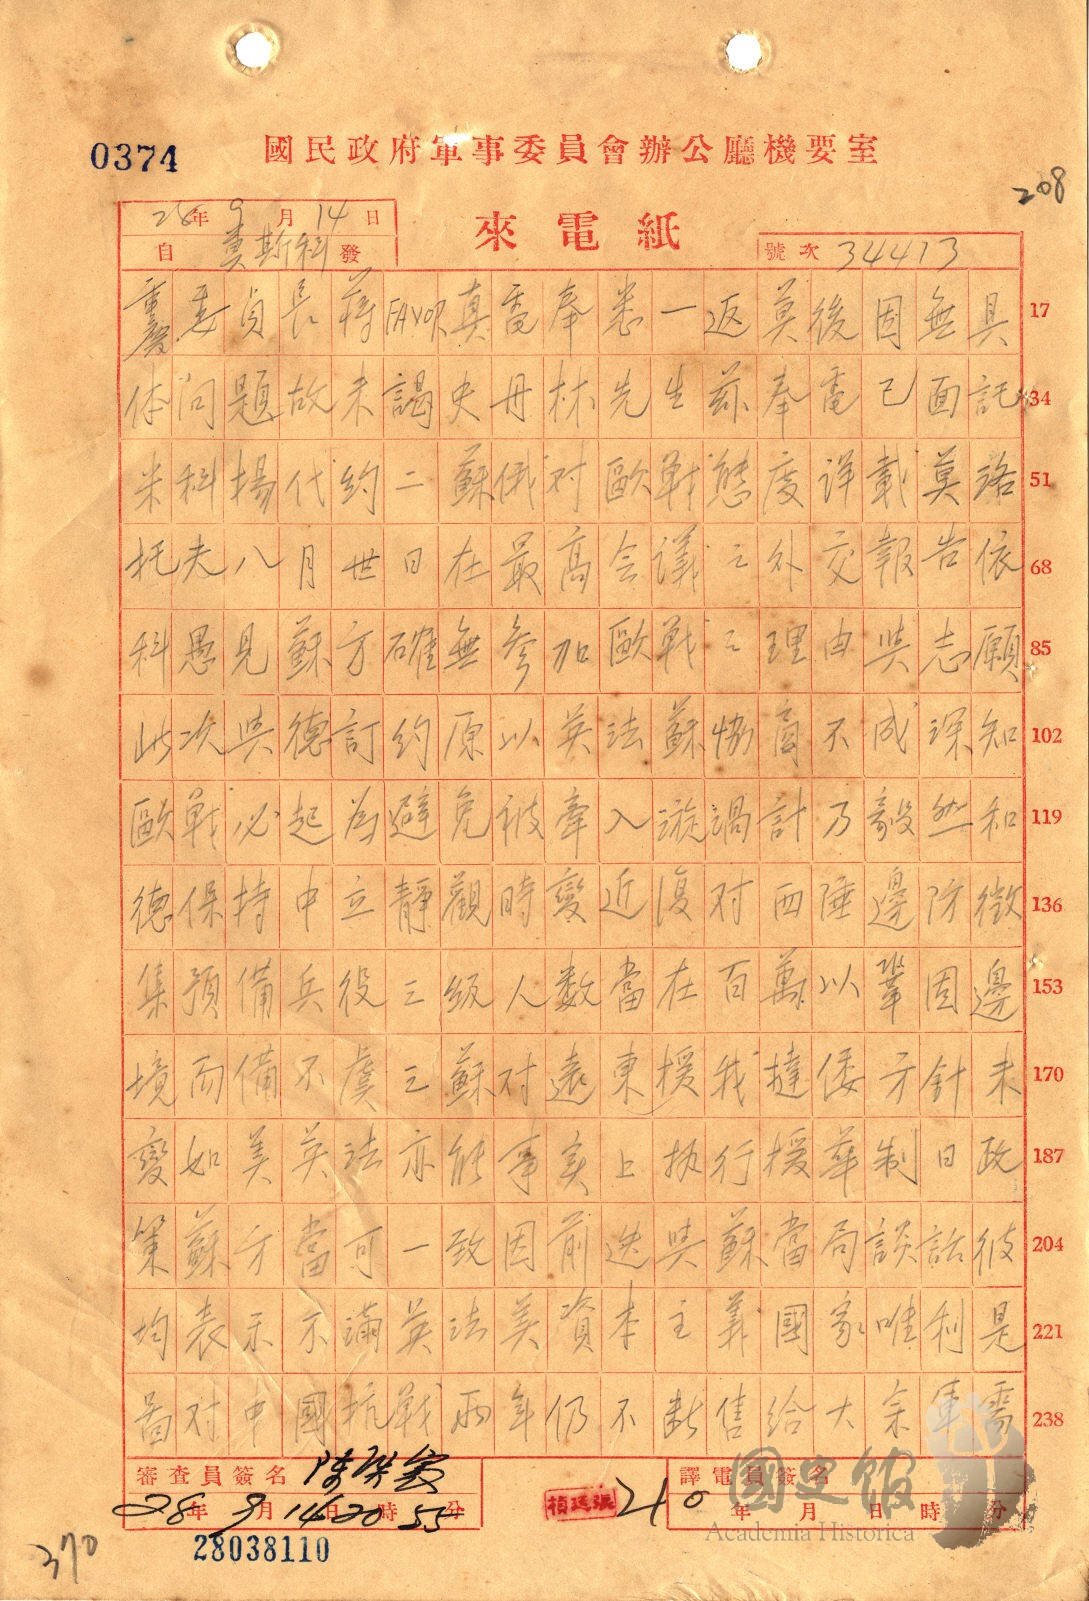 0374
國民政府軍事委員會辦公廳機要室
208
28年9月14日
來電紙
自莫斯科發
號次 34413
重慶委員長蔣FAVOR真電奉悉一返莫後因無具 17
体问題故未謁史丹林先生茲奉電已面託 34
米科揚代約二蘇俄对歐戰態度详載莫洛 51
托夫八月世日在最高会議之外交報告依 68
科愚見蘇方確無參加歐戰之理由與志願 85
此次與德訂約原以英法蘇協商不成深知 102
歐戰必起為避免被牽入漩渦計乃毅然和 119
德保持中立靜觀時變近復对西陲邊防徵 136
集預備兵役三級人数當在百萬以鞏固邊 153
境而備不虞三蘇对遠東援我撻倭方針未 170
變如美英法亦能事实上执行援華制日政 187
策蘇方當可一致因前迭與蘇當局談話彼 204
均表示不滿英法美資本主義國家唯利是 221
啚对中國抗戰兩年仍不断售給大宗軍需 238
審查員簽名
譯電員簽名
28年9月14日20時55分
210
年 月 日 時 分
國史館
Academia Historica
28038110
370